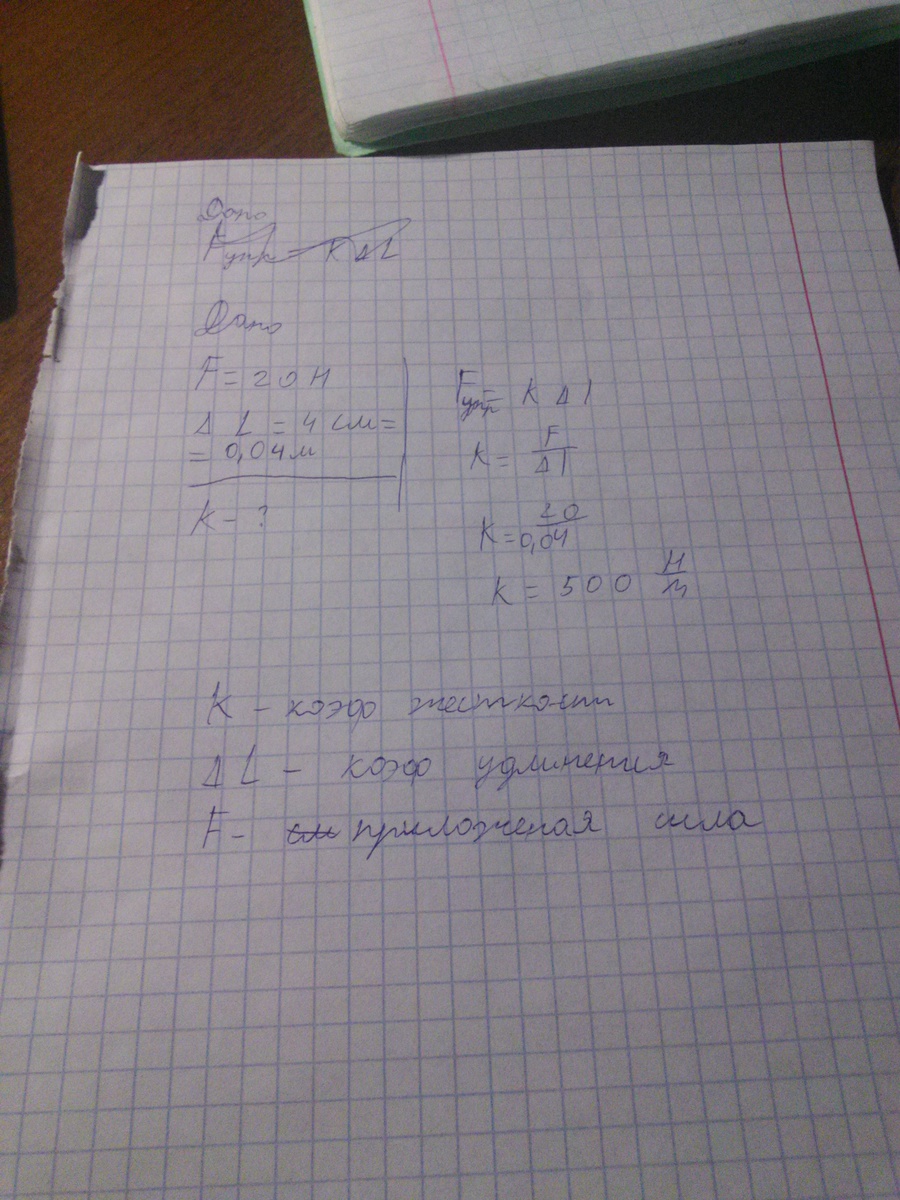 Дано
Fупр = K Δ L
Дано
F = 20 Н
Δ L = 4 см =
= 0,04 м
K - ?
Fупр = K Δ l
K = F / Δ l
K = 20 / 0,04
K = 500 Н / м
K - коэф жесткости
Δ L - коэф удлинения
F - см приложеная сила